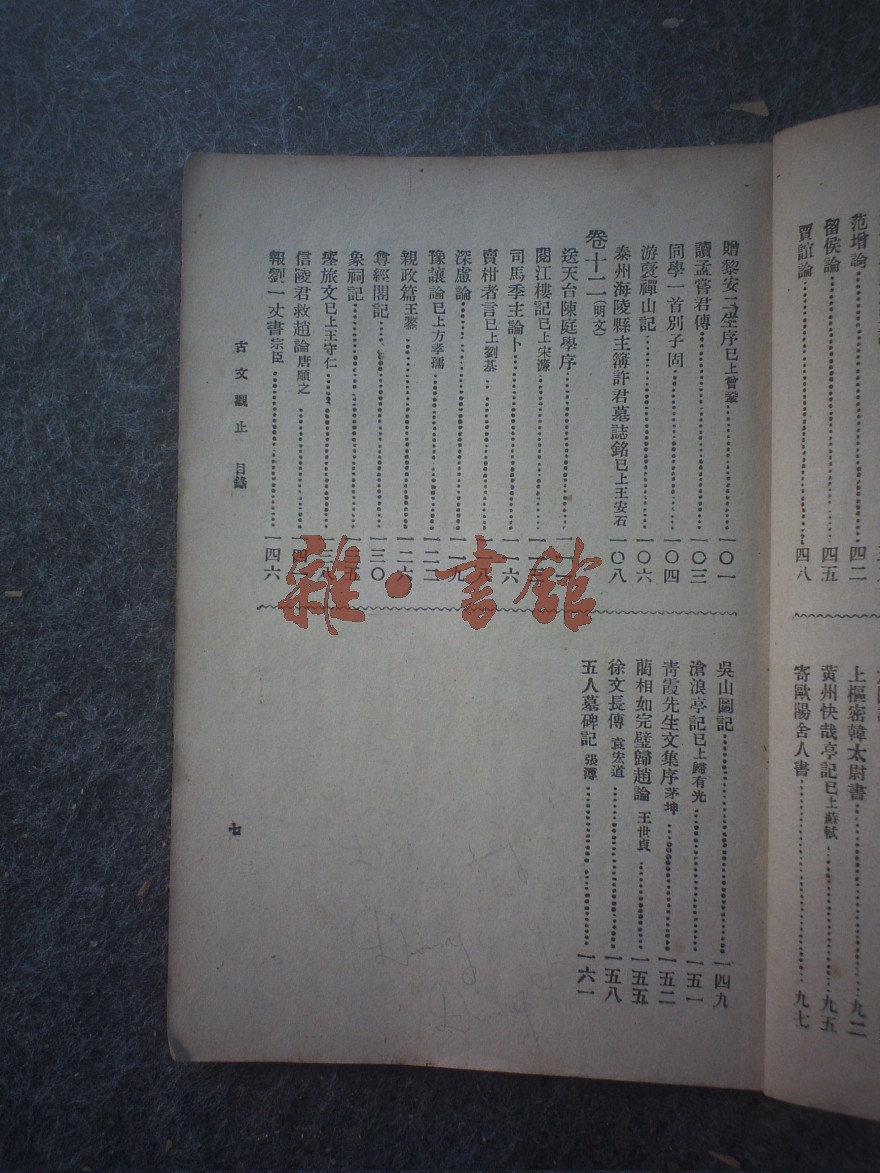 范增論 四二
留侯論 四五
賈誼論 四八
上樞密韓太尉書 九二
黃州快哉亭記已上蘇轍 九五
寄歐陽舍人書 九七
贈黎安二生序已上曾鞏 一〇一
讀孟嘗君傳 一〇三
同學一首別子固 一〇四
游褒禪山記 一〇六
泰州海陵縣主簿許君墓誌銘已上王安石 一〇八
卷十二（明文）
送天台陳庭學序
閱江樓記已上宋濂
司馬季主論卜 一一六
賣柑者言已上劉基
深慮論 一一九
豫讓論已上方孝孺 一二二
親政篇王鏊 一二六
尊經閣記 一三〇
象祠記 一三五
瘞旅文已上王守仁 一三八
信陵君救趙論唐順之
報劉一丈書宗臣 一四六
吳山圖記 一四九
滄浪亭記已上歸有光 一五一
青霞先生文集序茅坤 一五二
藺相如完璧歸趙論 王世貞 一五五
徐文長傳 袁宏道 一五八
五人墓碑記 張溥 一六一
古文觀止 目錄
七
雜·書館